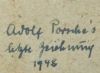 Adolf
letzte Zeichnung
1948